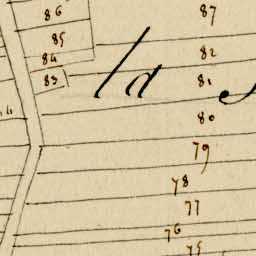 86
87
85
82
84
83
81
la
80
79
78
77
76
75